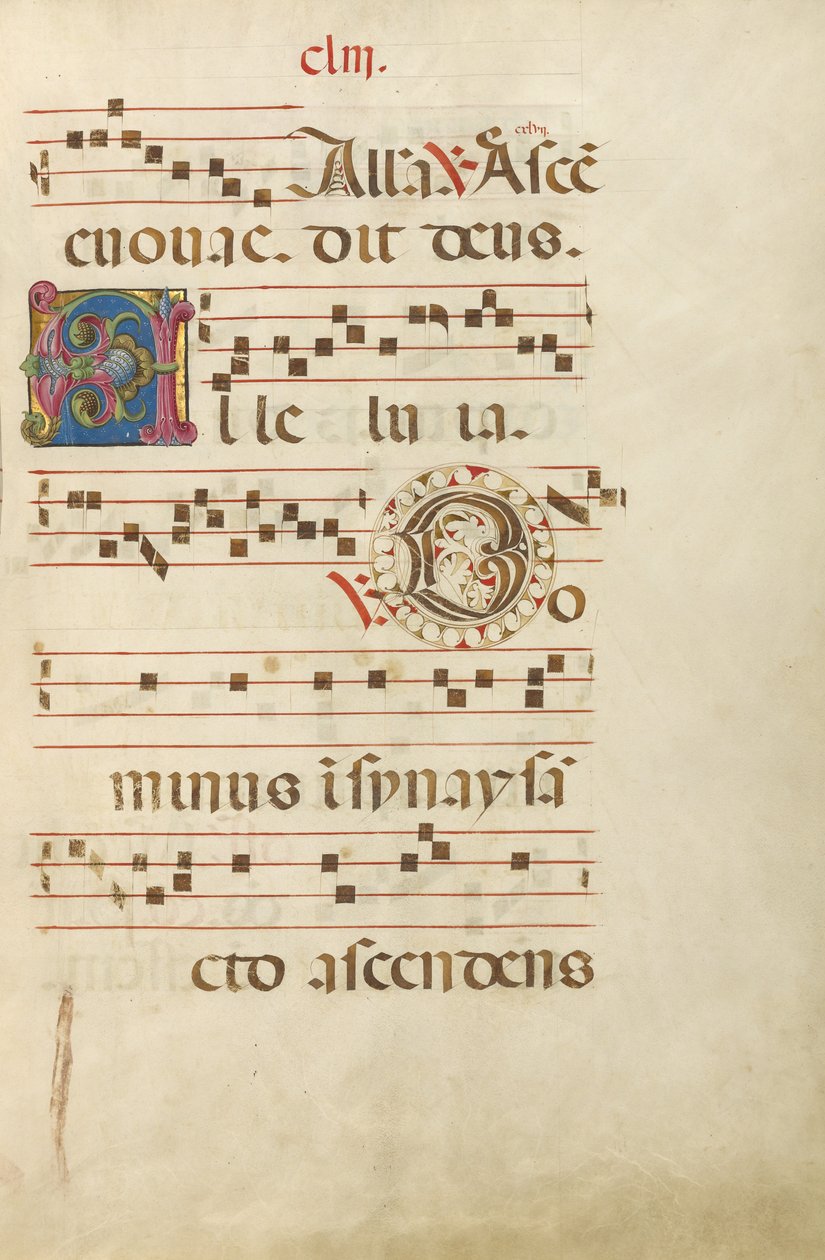 cliij.
cxlvij.
All'a. ℣ Ascē
euouae. dit deus.
A lle lu ia.
℣ Do
minus i synay sā
cto ascendens